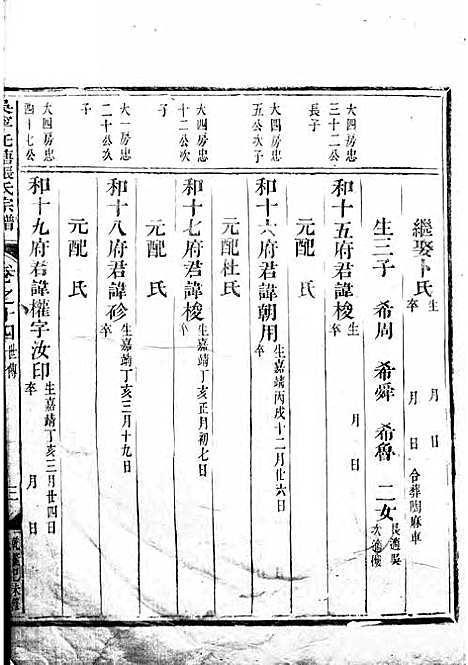 繼娶卜氏 生 月 日 卒 月 日 合葬關麻車
生三子 希周 希舜 希魯 二女 長適吳 次適
大四房忠三十二公長子
和十五府君諱梭 生 月 日 卒 月 日
元配 氏
大四房忠五公次子
和十六府君諱朝用 生嘉靖丙戌十二月廿六日 卒
元配杜氏
大四房忠十二公次子
和十七府君諱梭 生嘉靖丁亥正月初七日 卒
元配 氏
大一房忠二十公次子
和十八府君諱 生嘉靖丁亥三月十九日 卒
元配 氏
大四房忠四十七公
和十九府君諱權字汝印 生嘉靖丁亥三月廿四日 卒 月 日
吳寧托塘張氏宗譜 卷之十四 世傳